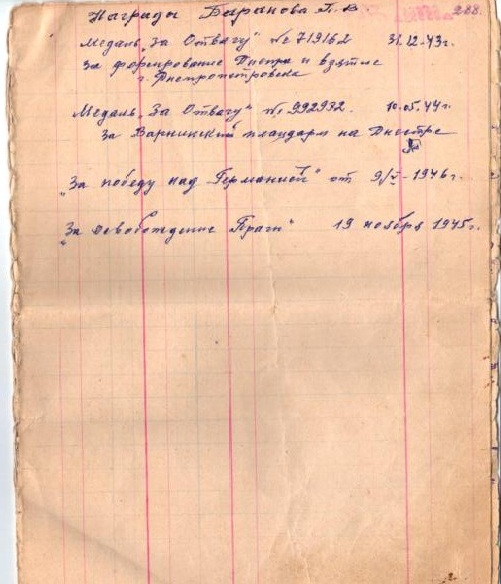 Награды Баранова П. В
288.
Медаль „За Отвагу" № 719162 31.12.43г.
за форсирование Днепра и взятие
г. Днепропетровска
Медаль „За Отвагу" № 992932. 10.05.44г.
За Варницкий плацдарм на Днестре
„За победу над Германией" от 9/V-1946г.
„За освобождение Праги" 19 ноября 1945г.